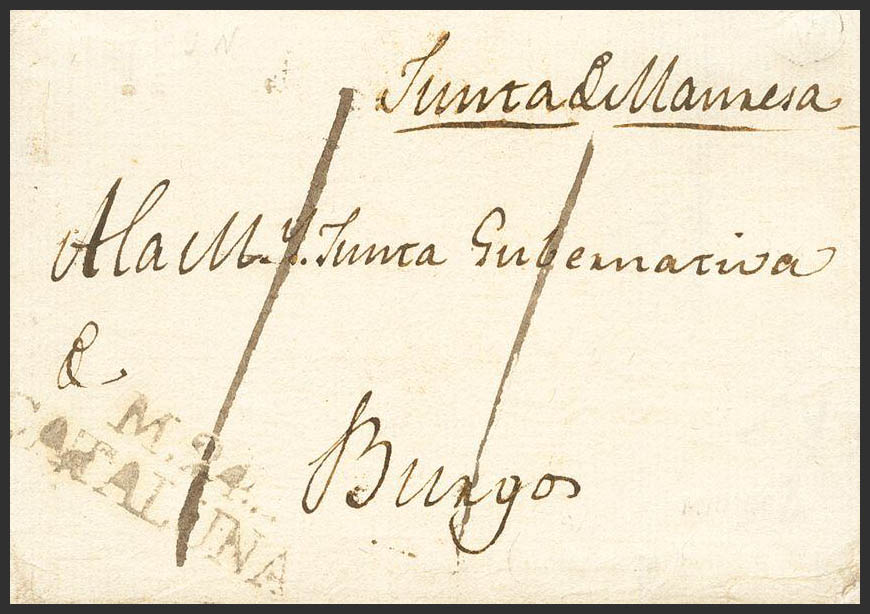 Junta de Manresa
A la M. Y. Junta Gubernativa
de
Burgos
M.24..
CATALUÑA